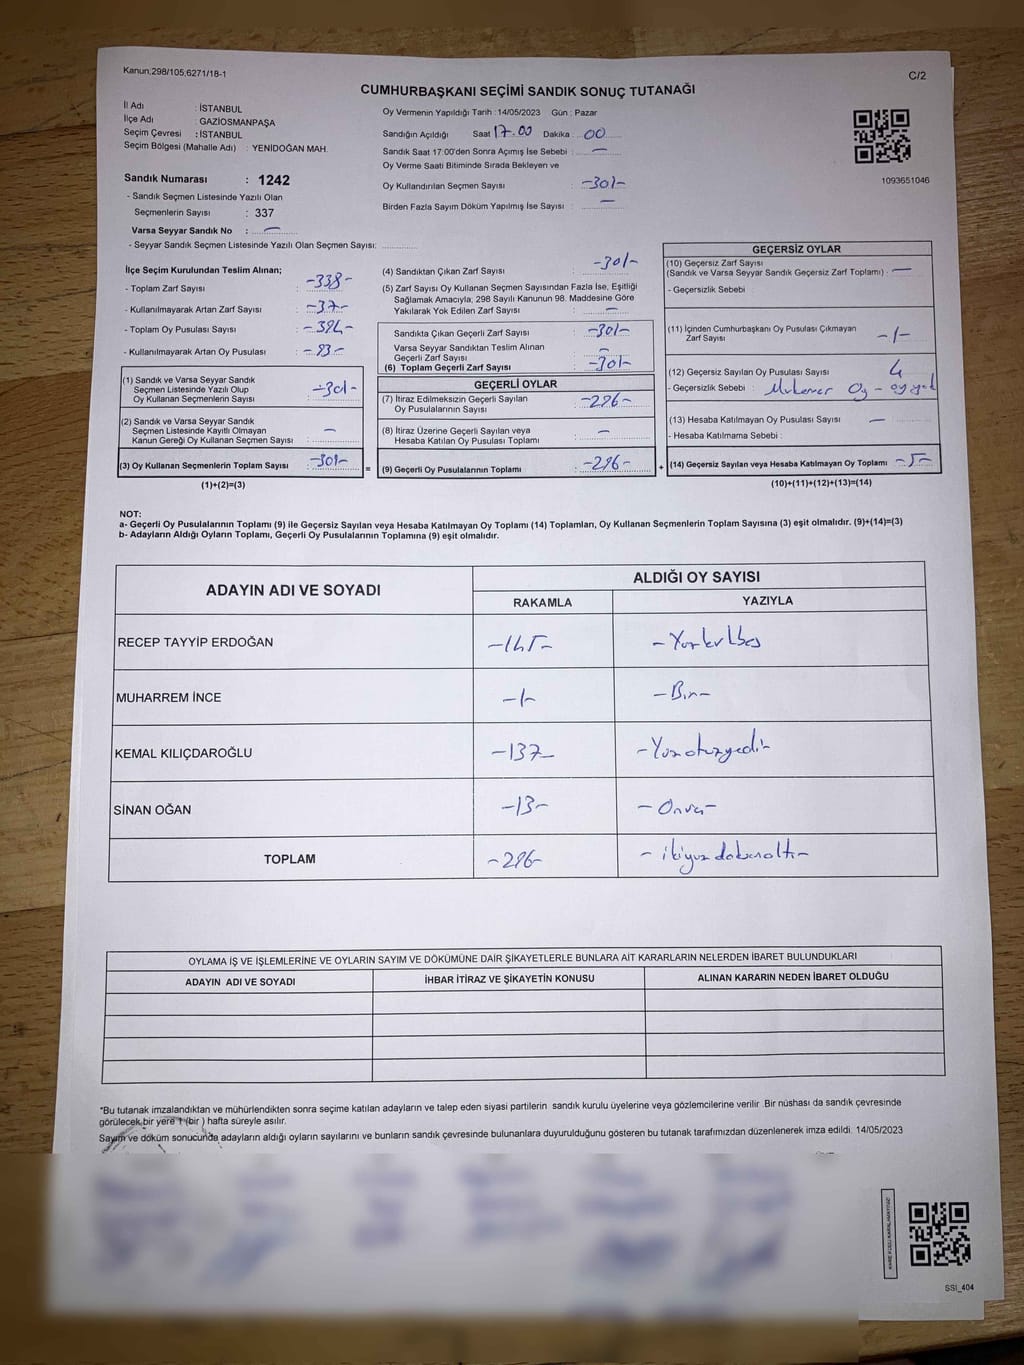 Kanun;298/105;6271/18-1
C/2
CUMHURBAŞKANI SEÇİMİ SANDIK SONUÇ TUTANAĞI
İl Adı : İSTANBUL
İlçe Adı : GAZİOSMANPAŞA
Seçim Çevresi : İSTANBUL
Seçim Bölgesi (Mahalle Adı) : YENİDOĞAN MAH.
Sandık Numarası : 1242
- Sandık Seçmen Listesinde Yazılı Olan
Seçmenlerin Sayısı : 337
Varsa Seyyar Sandık No : —
- Seyyar Sandık Seçmen Listesinde Yazılı Olan Seçmen Sayısı:
Oy Vermenin Yapıldığı Tarih : 14/05/2023 Gün : Pazar
Sandığın Açıldığı Saat 17.00 Dakika : 00
Sandık Saat 17:00'den Sonra Açımış İse Sebebi : —
Oy Verme Saati Bitiminde Sırada Bekleyen ve
Oy Kullandırılan Seçmen Sayısı : -301-
Birden Fazla Sayım Döküm Yapılmış İse Sayısı : —
1093651046
İlçe Seçim Kurulundan Teslim Alınan;
- Toplam Zarf Sayısı : -338-
- Kullanılmayarak Artan Zarf Sayısı : -37-
- Toplam Oy Pusulası Sayısı : -394-
- Kullanılmayarak Artan Oy Pusulası : -93-
(1) Sandık ve Varsa Seyyar Sandık
Seçmen Listesinde Yazılı Olup
Oy Kullanan Seçmenlerin Sayısı : -301-
(2) Sandık ve Varsa Seyyar Sandık
Seçmen Listesinde Kayıtlı Olmayan
Kanun Gereği Oy Kullanan Seçmen Sayısı : —
(3) Oy Kullanan Seçmenlerin Toplam Sayısı : -301-
(1)+(2)=(3)
=
(4) Sandıktan Çıkan Zarf Sayısı : -301-
(5) Zarf Sayısı Oy Kullanan Seçmen Sayısından Fazla İse, Eşitliği
Sağlamak Amacıyla; 298 Sayılı Kanunun 98. Maddesine Göre
Yakılarak Yok Edilen Zarf Sayısı : —
Sandıkta Çıkan Geçerli Zarf Sayısı : -301-
Varsa Seyyar Sandıktan Teslim Alınan
Geçerli Zarf Sayısı : —
(6) Toplam Geçerli Zarf Sayısı : -301-
GEÇERLİ OYLAR
(7) İtiraz Edilmeksizin Geçerli Sayılan
Oy Pusulalarının Sayısı : -296-
(8) İtiraz Üzerine Geçerli Sayılan veya
Hesaba Katılan Oy Pusulası Toplamı : —
(9) Geçerli Oy Pusulalarının Toplamı : -296-
+
GEÇERSİZ OYLAR
(10) Geçersiz Zarf Sayısı
(Sandık ve Varsa Seyyar Sandık Geçersiz Zarf Toplamı) : —
- Geçersizlik Sebebi :
(11) İçinden Cumhurbaşkanı Oy Pusulası Çıkmayan
Zarf Sayısı -1-
(12) Geçersiz Sayılan Oy Pusulası Sayısı 4
- Geçersizlik Sebebi : Mükerrer Oy -
(13) Hesaba Katılmayan Oy Pusulası Sayısı : —
- Hesaba Katılmama Sebebi :
(14) Geçersiz Sayılan veya Hesaba Katılmayan Oy Toplamı : -5-
(10)+(11)+(12)+(13)=(14)
NOT:
a- Geçerli Oy Pusulalarının Toplamı (9) ile Geçersiz Sayılan veya Hesaba Katılmayan Oy Toplamı (14) Toplamları, Oy Kullanan Seçmenlerin Toplam Sayısına (3) eşit olmalıdır. (9)+(14)=(3)
b- Adayların Aldığı Oyların Toplamı, Geçerli Oy Pusulalarının Toplamına (9) eşit olmalıdır.
ADAYIN ADI VE SOYADI
ALDIĞI OY SAYISI
RAKAMLA YAZIYLA
RECEP TAYYİP ERDOĞAN -145- -Yüzkırkbeş
MUHARREM İNCE -1- -Bir-
KEMAL KILIÇDAROĞLU -137- -Yüzotuzyedi-
SİNAN OĞAN -13- -Onüç-
TOPLAM -296- -ikiyüzdoksanaltı-
OYLAMA İŞ VE İŞLEMLERİNE VE OYLARIN SAYIM VE DÖKÜMÜNE DAİR ŞİKAYETLERLE BUNLARA AİT KARARLARIN NELERDEN İBARET BULUNDUKLARI
ADAYIN ADI VE SOYADI İHBAR İTİRAZ VE ŞİKAYETİN KONUSU ALINAN KARARIN NEDEN İBARET OLDUĞU
*Bu tutanak imzalandıktan ve mühürlendikten sonra seçime katılan adayların ve talep eden siyasi partilerin sandık kurulu üyelerine veya gözlemcilerine verilir .Bir nüshası da sandık çevresinde
görülecek bir yere 1 (bir ) hafta süreyle asılır.
Sayım ve döküm sonucunda adayların aldığı oyların sayılarını ve bunların sandık çevresinde bulunanlara duyurulduğunu gösteren bu tutanak tarafımızdan düzenlenerek imza edildi. 14/05/2023
SSİ_404